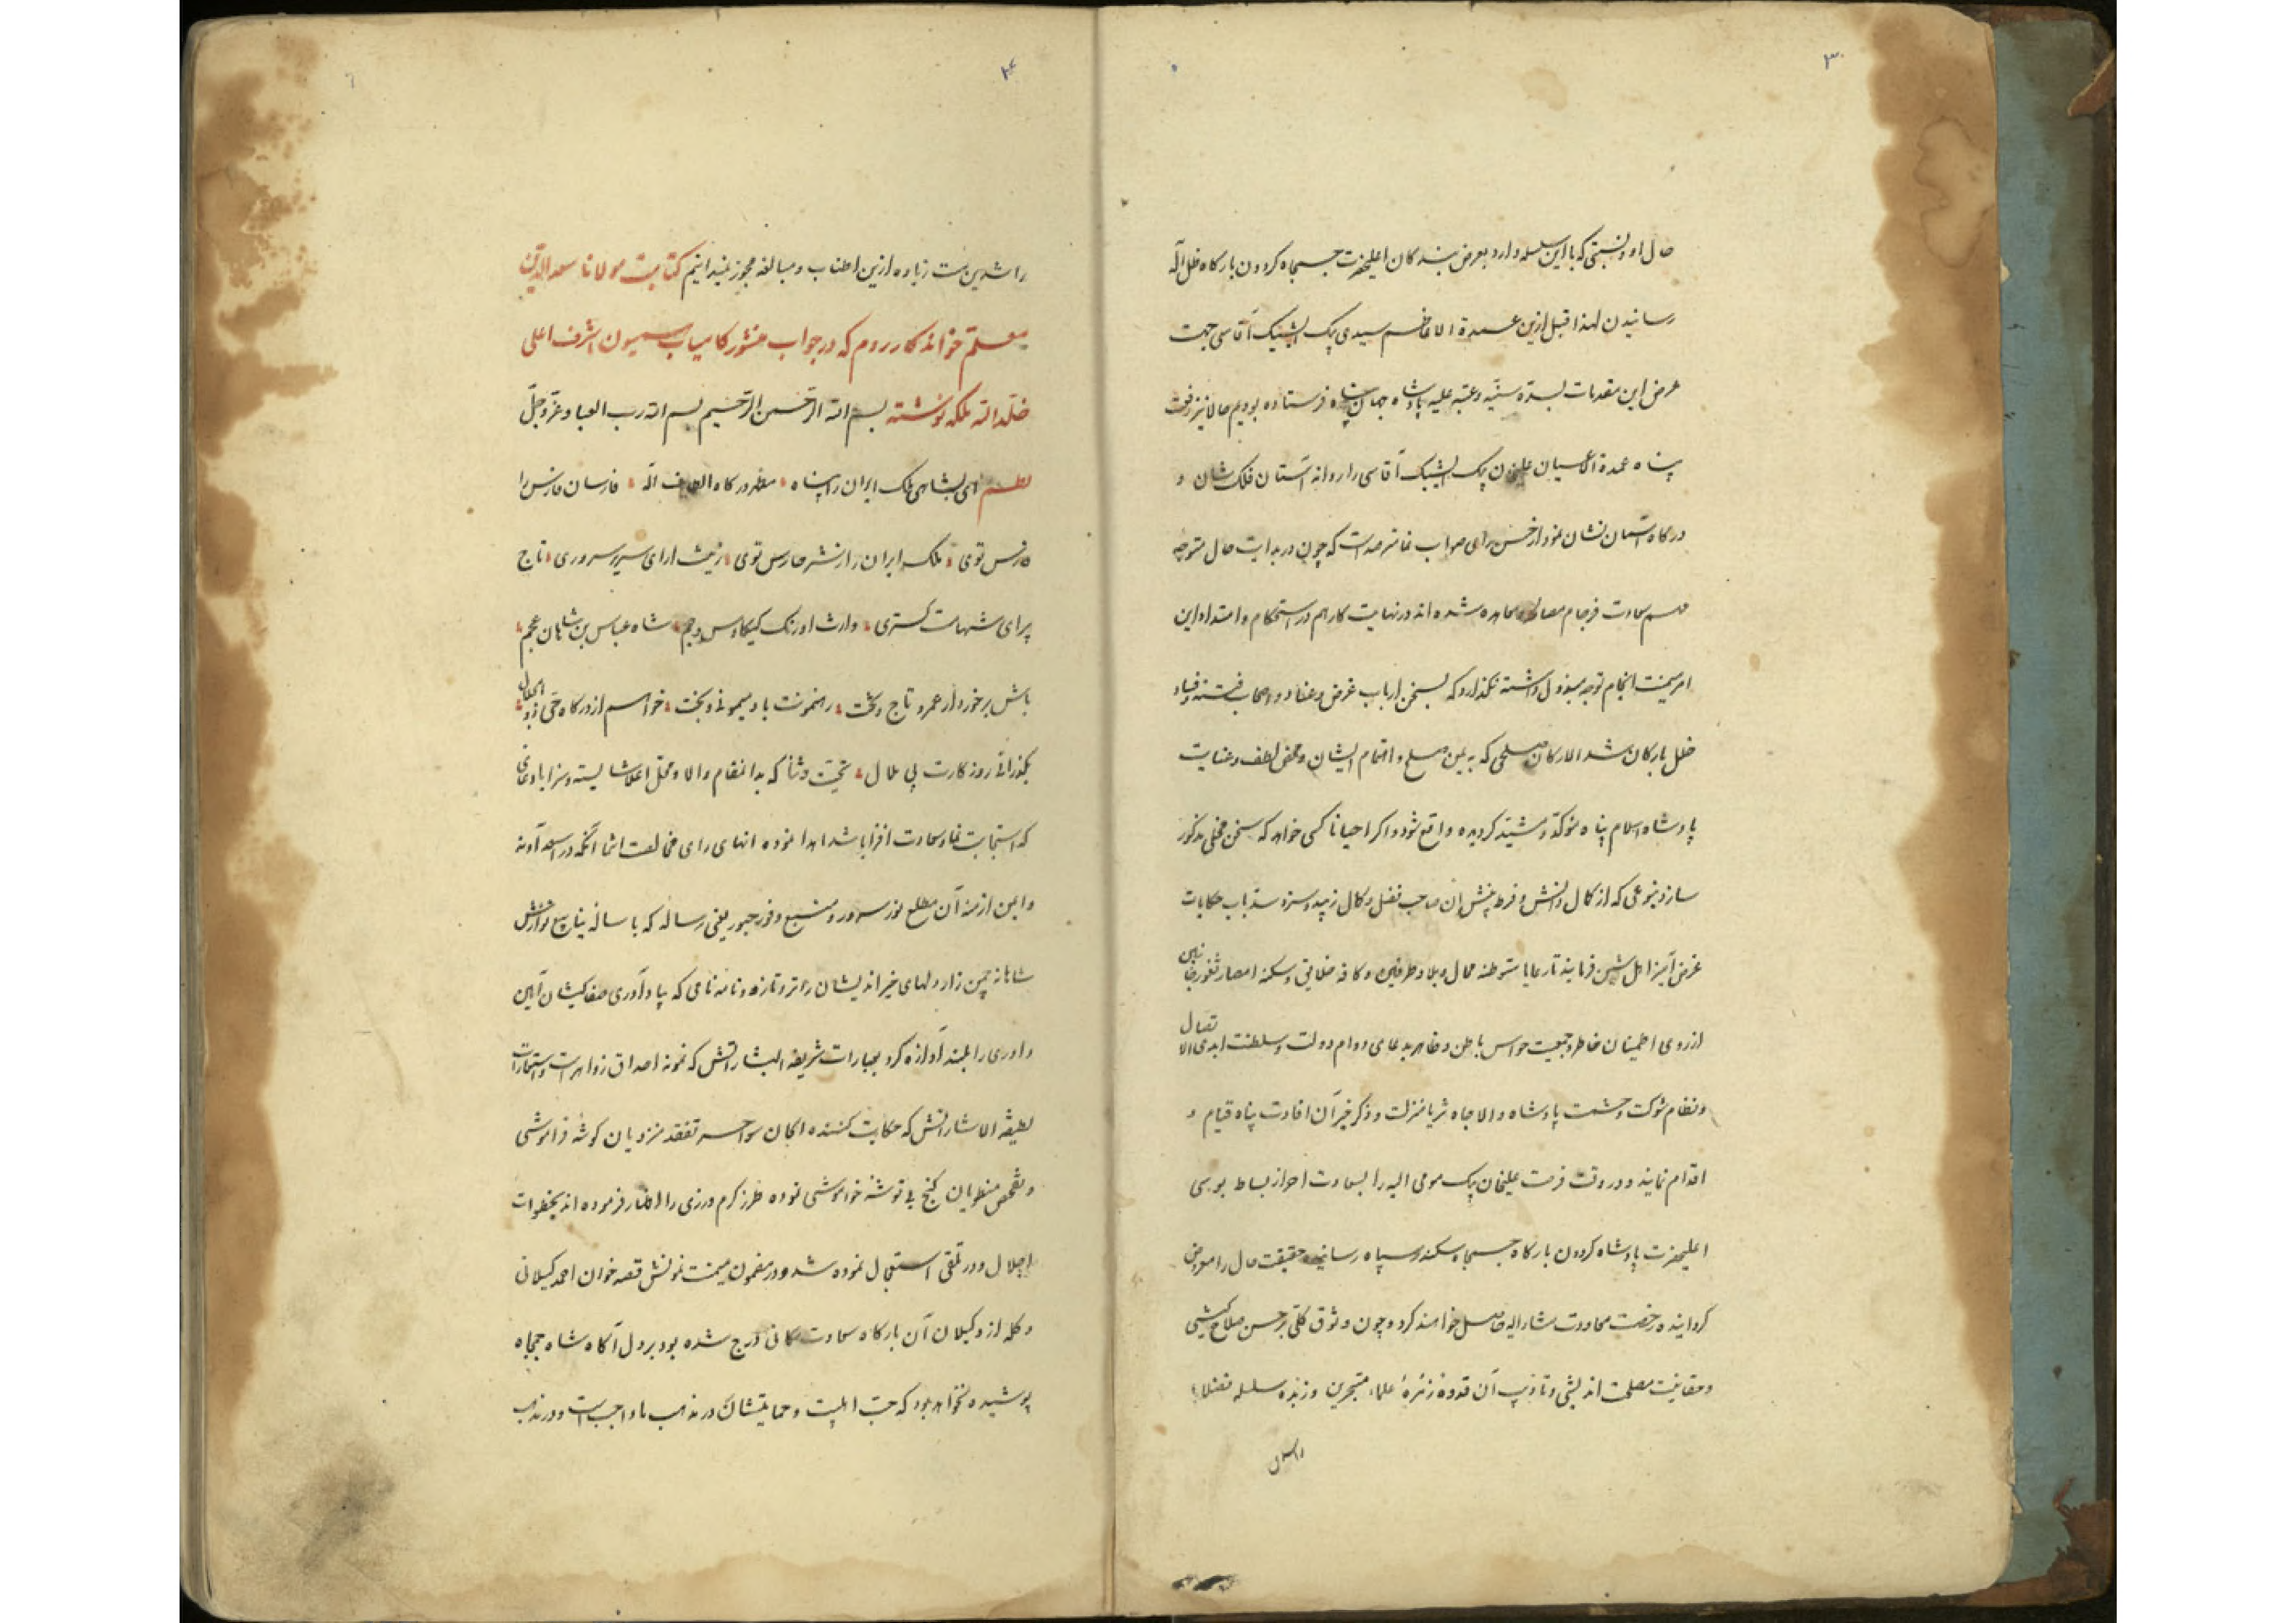 ۳
حال او و نسبتی که با این سلسله دارد بعرض بندکان اعلیحضرت جمجاه کردون بارکاه ظل اله
رسانیدن لهذا قبل ازین عمدة الاعاظم سیدی بیک ایشیک آقاسی جهت
عرض این مقدمات بسده سنیّه و عتبه علیه پادشاه جهان پناه فرستاده بودیم حالا نیز رفعت
پناه عمدة الاعیان علیخان بیک ایشیک آقاسی را روانه آستان فلک شان و
درکاه آسمان نشان نمود از حسن رای صواب نما مترصد است که چون در بدایت حال متوجه
مهم سعادت فرجام مصالحه و معاهده شده اند در نهایت کار هم در استحکام و امتداد این
امر میمنت انجام توجه مبذول داشته نکذارد که بسخن ارباب غرض و عناد و اصحاب فتنه و فساد
خلل بارکان شدالارکان صلحی که به یمن صلح و اهتمام ایشان و محض لطف و عنایت
پادشاه اسلام پناه مؤکد و مشیّد کردیده واقع شود و اکر احیانا کسی خواهد که سخن مخلی مذکور
سازد بنوعی که از کمال دانش و فرط بینش آن صاحب فضل و کمال زیبد و سزد سد باب حکایات
غرض آمیز اهل شین فرمایند تا رعایا متوطنه محال و بلاد طرفین و کافه خلایق و سکنه امصار و ثغور جانبین
از روی اطمینان خاطر و جمعیت حواس باطن و ظاهر بدعای دوام دولت و سلطنت ابدی الاتصال
و نظام شوکت و حشمت پادشاه والا جاه ثریا منزلت و ذکر خیر آن افادت پناه قیام و
اقدام نمایند و در وقت فرصت علیخان بیک مومی الیه را بسعادت احراز بساط بوسی
اعلیحضرت پادشاه کردون بارکاه جمجاه سکندر سپاه رسانیده حقیقت حال را معروض
کردانیده رخصت معاودت مشارالیه حاصل خواهند کرد و چون وثوق کلی بر حسن صلاح کیشی
و حقانیت مصلحت اندیشی و تادیب آن قدوهٔ زمرهٔ علماء متبحرین و زبده سلسله فضلاء
راسدین
۴
راشدین ست زیاده ازین اطناب و مبالغه مجوز نمیدانیم کتابت مولانا سعدالدین
معلم خواندکار روم که در جواب منشور کامیاب همیون اشرف اعلی
خلد الله ملکه نوشته بسم الله الرحمن الرحیم بسم الله رب العباد عزّ و جلّ
نظم ای بشاهی ملک ایران را پناه مظهر درکاه الطاف اله فارسان فارس را
فارس توی ملک ایران را ز شر حارس توی زینت ارای سریر سروری تاج
برای شهامت کستری وارث اورنک کیکاوس و جم شاه عباس بن شاهان عجم
باش برخوردار عمر و تاج و تخت رهنمونت باد میمونی و بخت خواهم از درکاه حی ذوالجلال
بکذرانی روزکارت بی ملال تحیت و ثنا که بدان مقام والا و محل اعلا شایسته و سزا باد و دعای
که استجابت نما و سعادت افزا باشد اهدا نموده انهای رای مخالصت انتما آنکه در اسعد آونه
و ایمن ازمنه آن مطلع نور سرور و منبع وفور حبور یعنی رساله که با ساله ینابیع نوازش
شاهانه چمن زار دلهای خیراندیشان را تر و تازه و نامه نامی که بیاد آوری صفا کیشان آیین
داوری را بلند آوازه کرد بعبارات شریفه البشاراتش که نمونه اصداق زواهرست و استعارات
لطیفه الاشاراتش که حکایت کننده الحان سواحر تفقد منزویان کوشه فراموشی
و تفحص منطویان کنج بی توشه خاموشی نموده طرز کرم ورزی را اظهار فرموده اند بخطوات
اجلال و در تلقی استعجال نموده شد و در مضمون میمنت نمونش قصه خوان احمد کیلانی
و کله از وکیلان آن بارکاه سعادت مکانی درج شده بود بر دل آکاه شاه جمجاه
پوشیده نخواهد بود که حبّ اهلبیت و حمایتشان در مذهب ما واجب است و در مذهب